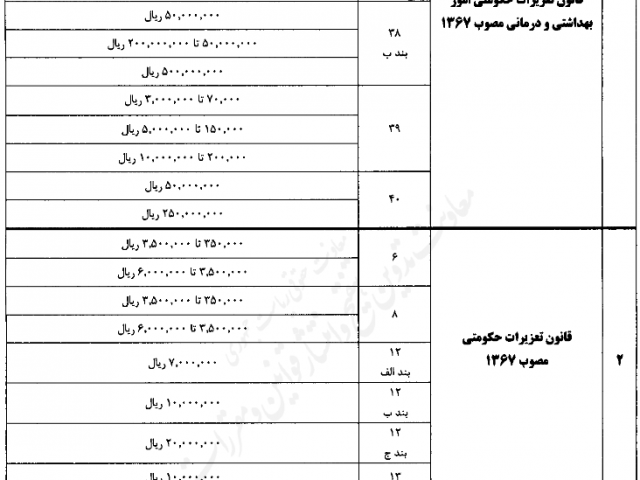 قانون تعزیرات حکومتی امور
بهداشتی و درمانی مصوب ۱۳۶۷
۳۸
بند ب
۵۰,۰۰۰,۰۰۰ ریال
۵۰,۰۰۰,۰۰۰ تا ۲۰۰,۰۰۰,۰۰۰ ریال
۵۰۰,۰۰۰,۰۰۰ ریال
۳۹
۷۰,۰۰۰ تا ۳,۰۰۰,۰۰۰ ریال
۱۵۰,۰۰۰ تا ۵,۰۰۰,۰۰۰ ریال
۲۰۰,۰۰۰ تا ۱۰,۰۰۰,۰۰۰ ریال
۴۰
۵۰,۰۰۰,۰۰۰ ریال
۲۵۰,۰۰۰,۰۰۰ ریال
۲
قانون تعزیرات حکومتی
مصوب ۱۳۶۷
۶
۳۵۰,۰۰۰ تا ۳,۵۰۰,۰۰۰ ریال
۳,۵۰۰,۰۰۰ تا ۶,۰۰۰,۰۰۰ ریال
۸
۳۵۰,۰۰۰ تا ۳,۵۰۰,۰۰۰ ریال
۳,۵۰۰,۰۰۰ تا ۶,۰۰۰,۰۰۰ ریال
۱۲
بند الف
۷,۰۰۰,۰۰۰ ریال
۱۲
بند ب
۱۰,۰۰۰,۰۰۰ ریال
۱۲
بند ج
۲۰,۰۰۰,۰۰۰ ریال
۱۳
۱۰,۰۰۰,۰۰۰ ریال
معاونت حقوقی ریاست جمهوری
معاونت تدوین، تنقیح و انتشار قوانین و مقررات